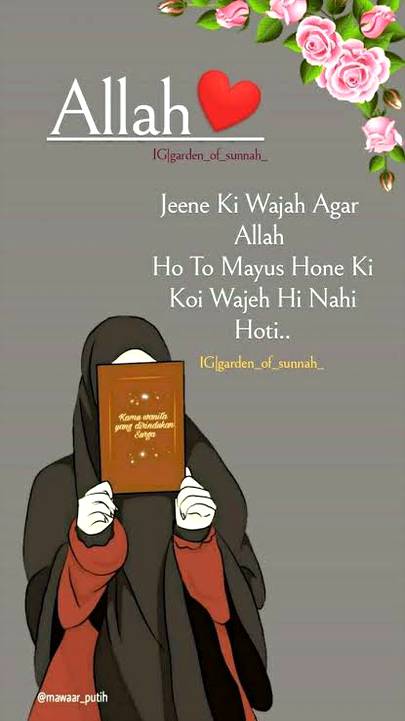 Allah
IG|garden_of_sunnah_
Jeene Ki Wajah Agar
Allah
Ho To Mayus Hone Ki
Koi Wajeh Hi Nahi
Hoti..
IG|garden_of_sunnah_
Kamu wanita
yang dirindukan
Surga
@mawaar_putih